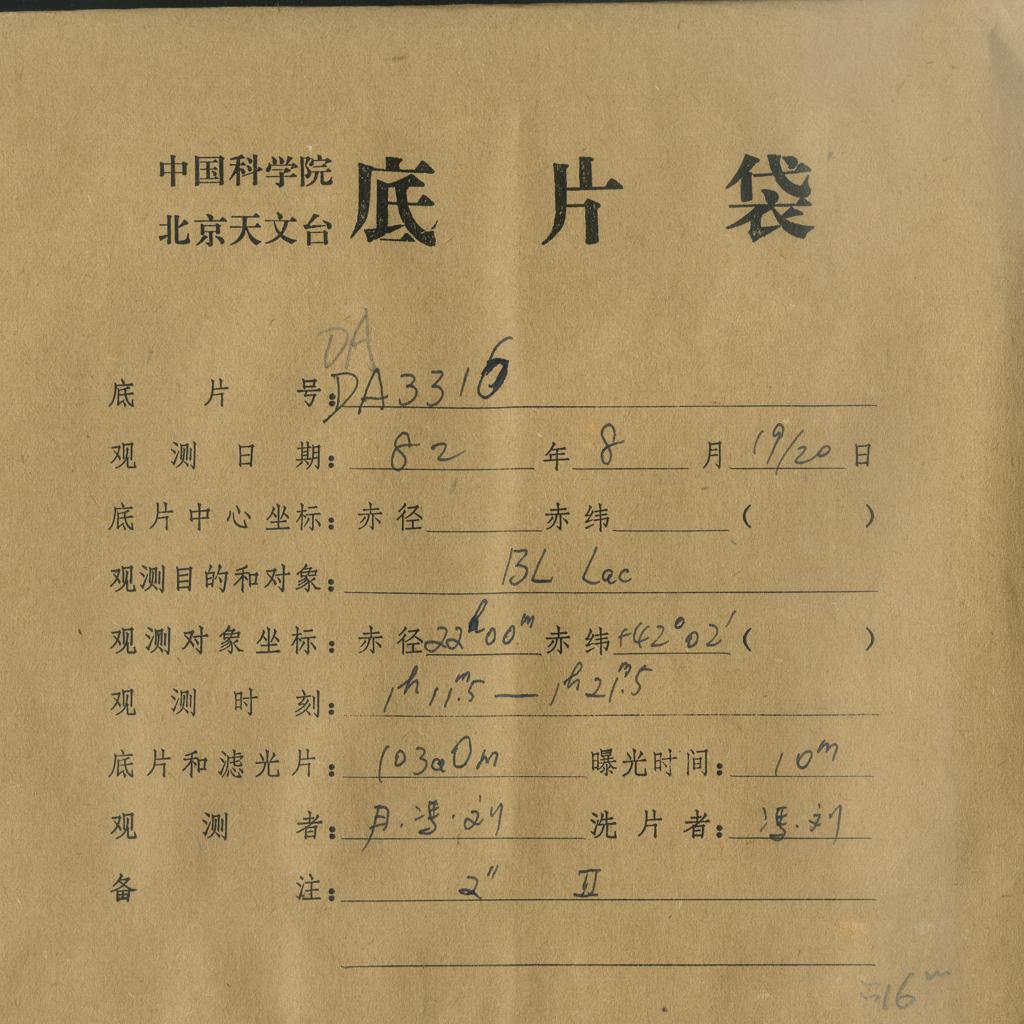 中国科学院
北京天文台
底片袋
DA
底片号：DA3316
观测日期：82年8月19/20日
底片中心坐标：赤径 赤纬 （ ）
观测目的和对象：BL Lac
观测对象坐标：赤径22ʰ00ᵐ赤纬+42°02′（ ）
观测时刻：1ʰ11ᵐ.5 — 1ʰ21ᵐ.5
底片和滤光片：103aOm 曝光时间：10ᵐ
观测者：冯·刘 洗片者：冯·刘
备注：2″ II
16ᵐ